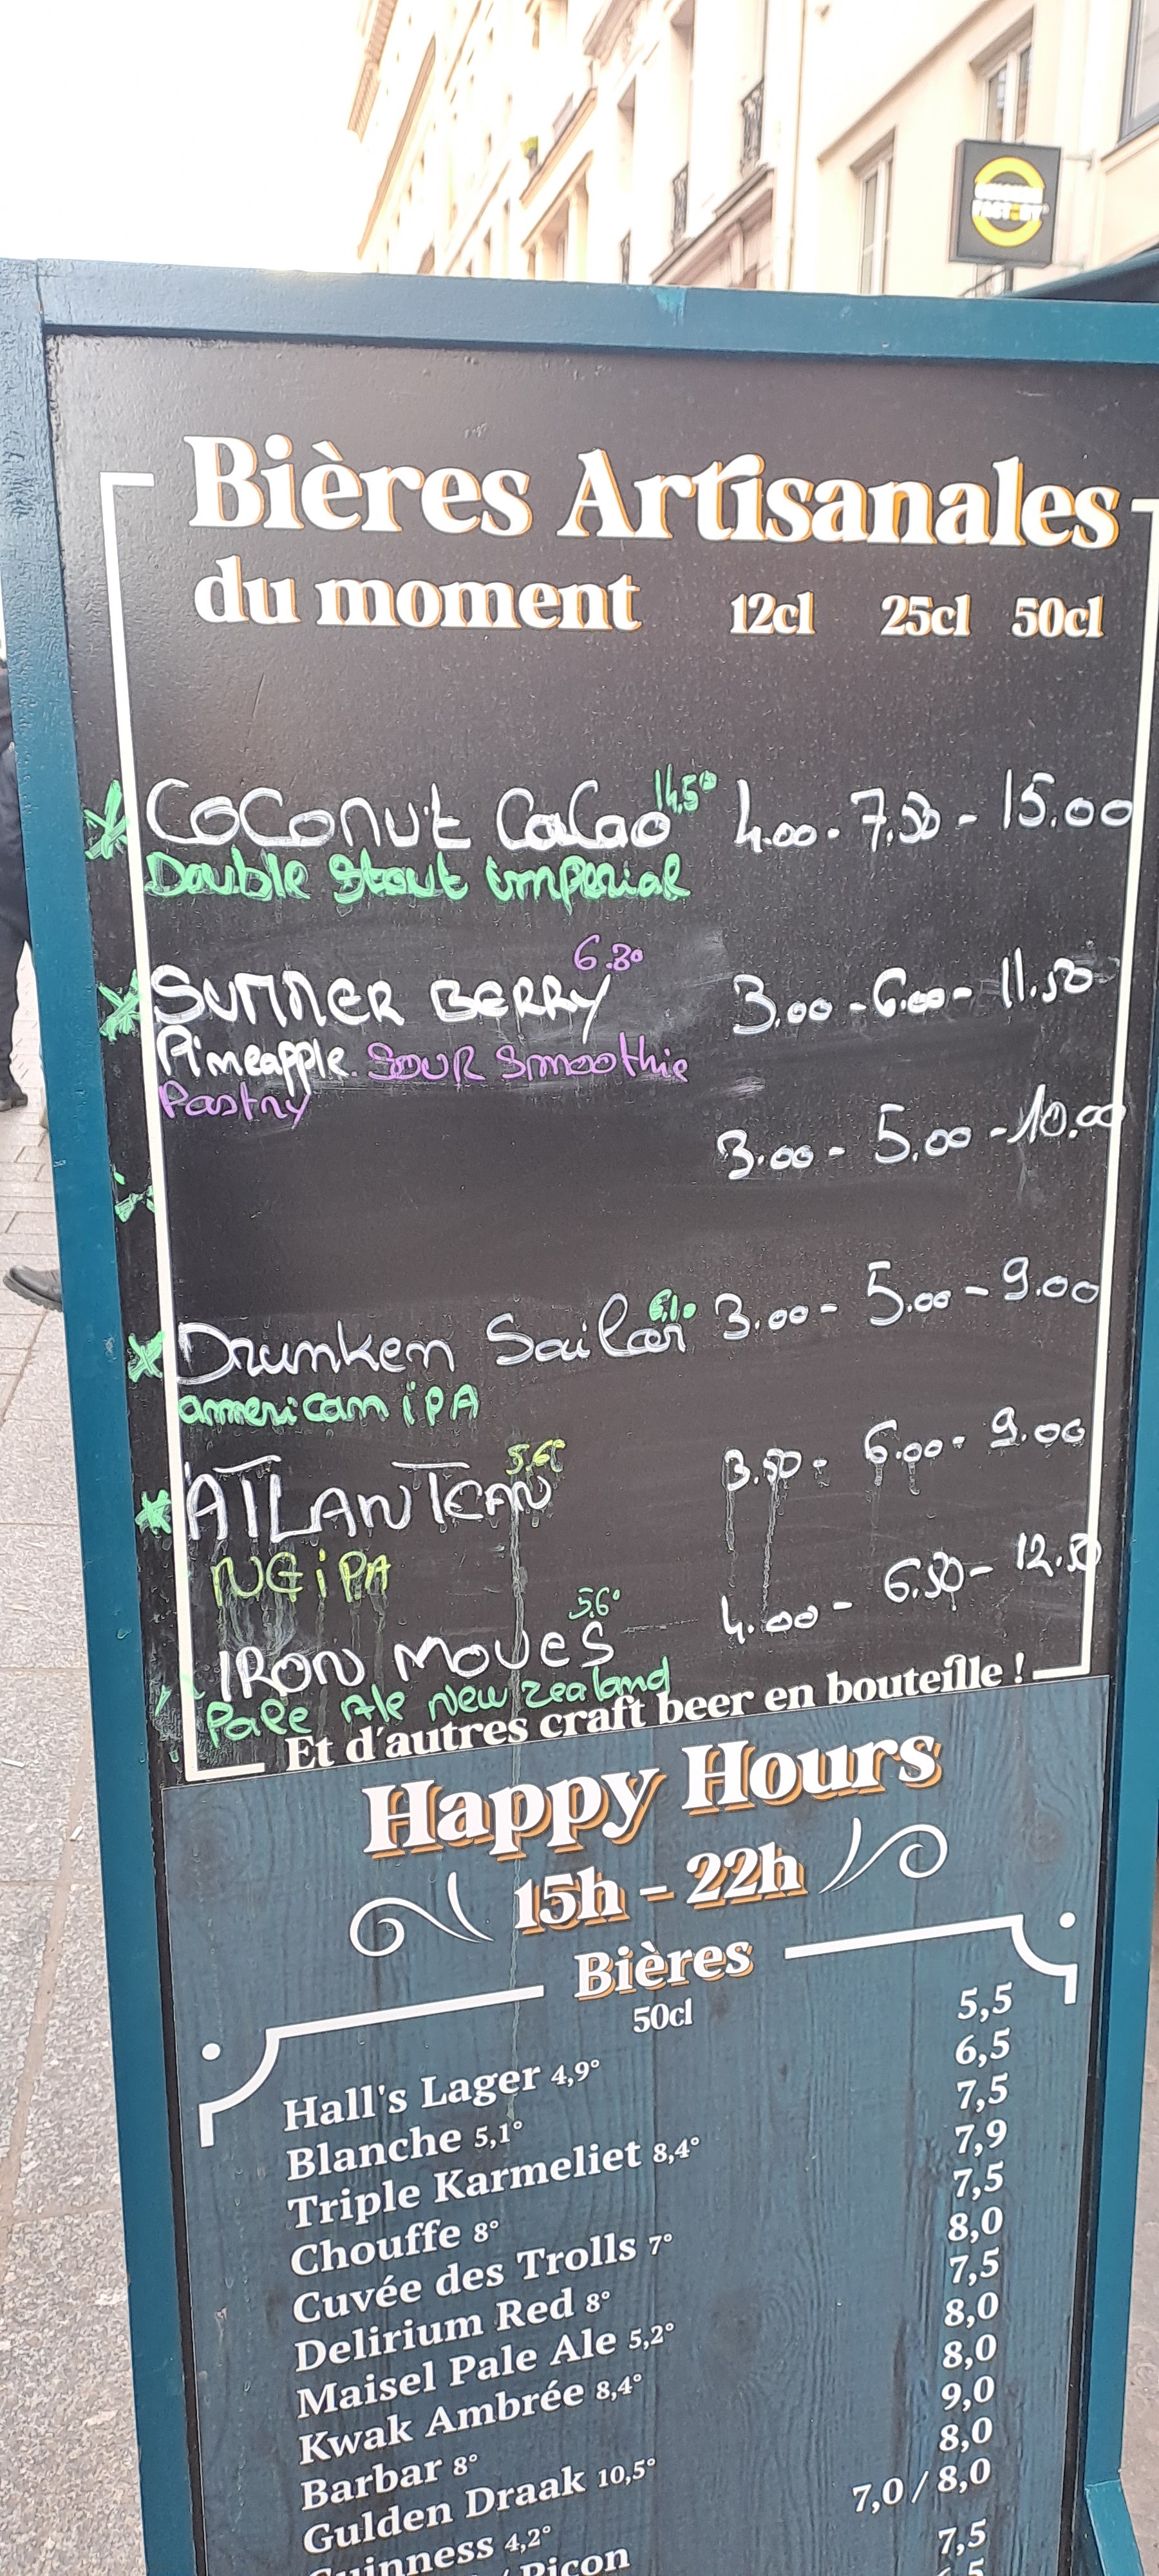 Bières Artisanales
du moment 12cl 25cl 50cl
Coconut Cacao 14.5° 4.00 - 7.50 - 15.00
Double Stout imperial
SUMMER BERRY 6.3° 3.00 - 6.00 - 11.50
Pineapple. SOUR Smoothie
Pastry
3.00 - 5.00 - 10.00
Drunken Sailor 6.1° 3.00 - 5.00 - 9.00
american iPA
ATLANTEAN 5.6° 3.50 - 6.00 - 9.00
NEiPA
IRON MOVES 5.6° 4.00 - 6.50 - 12.50
Pale Ale New Zealand
Et d'autres craft beer en bouteille !
Happy Hours
15h - 22h
Bières
50cl
Hall's Lager 4,9° 5,5
Blanche 5,1° 6,5
Triple Karmeliet 8,4° 7,5
Chouffe 8° 7,9
Cuvée des Trolls 7° 7,5
Delirium Red 8° 8,0
Maisel Pale Ale 5,2° 7,5
Kwak Ambrée 8,4° 8,0
Barbar 8° 8,0
Gulden Draak 10,5° 9,0
Guinness 4,2° 8,0
/ Picon 7,0 / 8,0
7,5